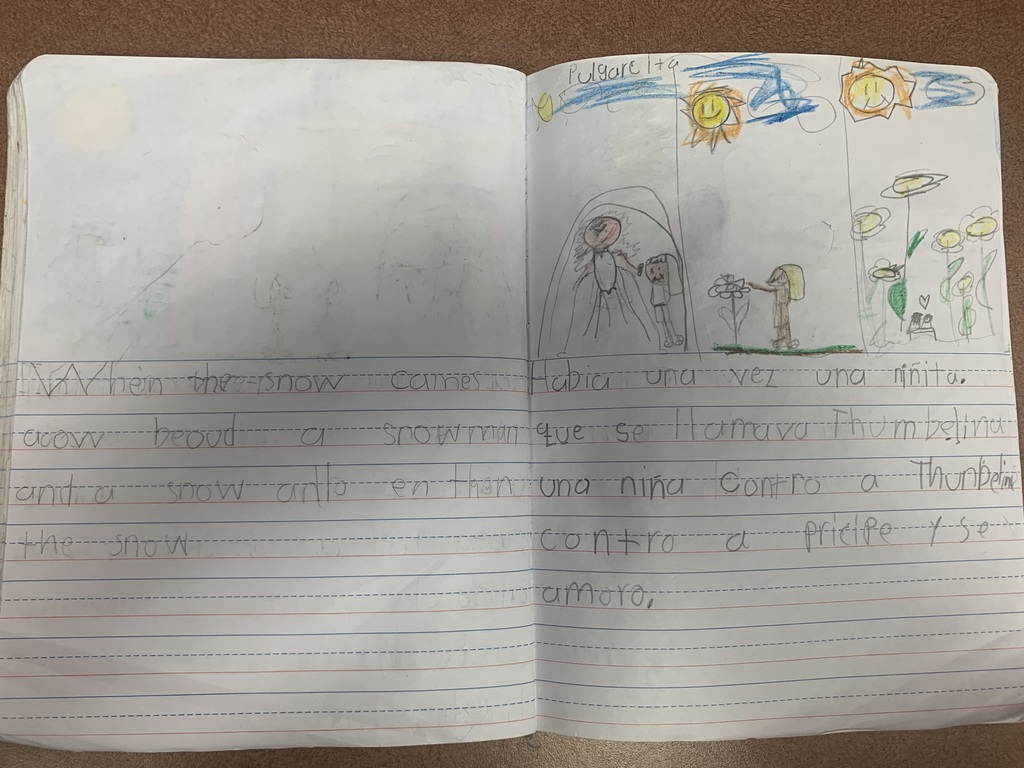 Whein the snow cames
acow beoud a snowman
and a snow anllo en then
the snow
Pulgarcita
Habia una vez una niñita.
que se llamava Thumbelina
una niña Contro a Thunbeline
contro a pricipe y se
amoro.